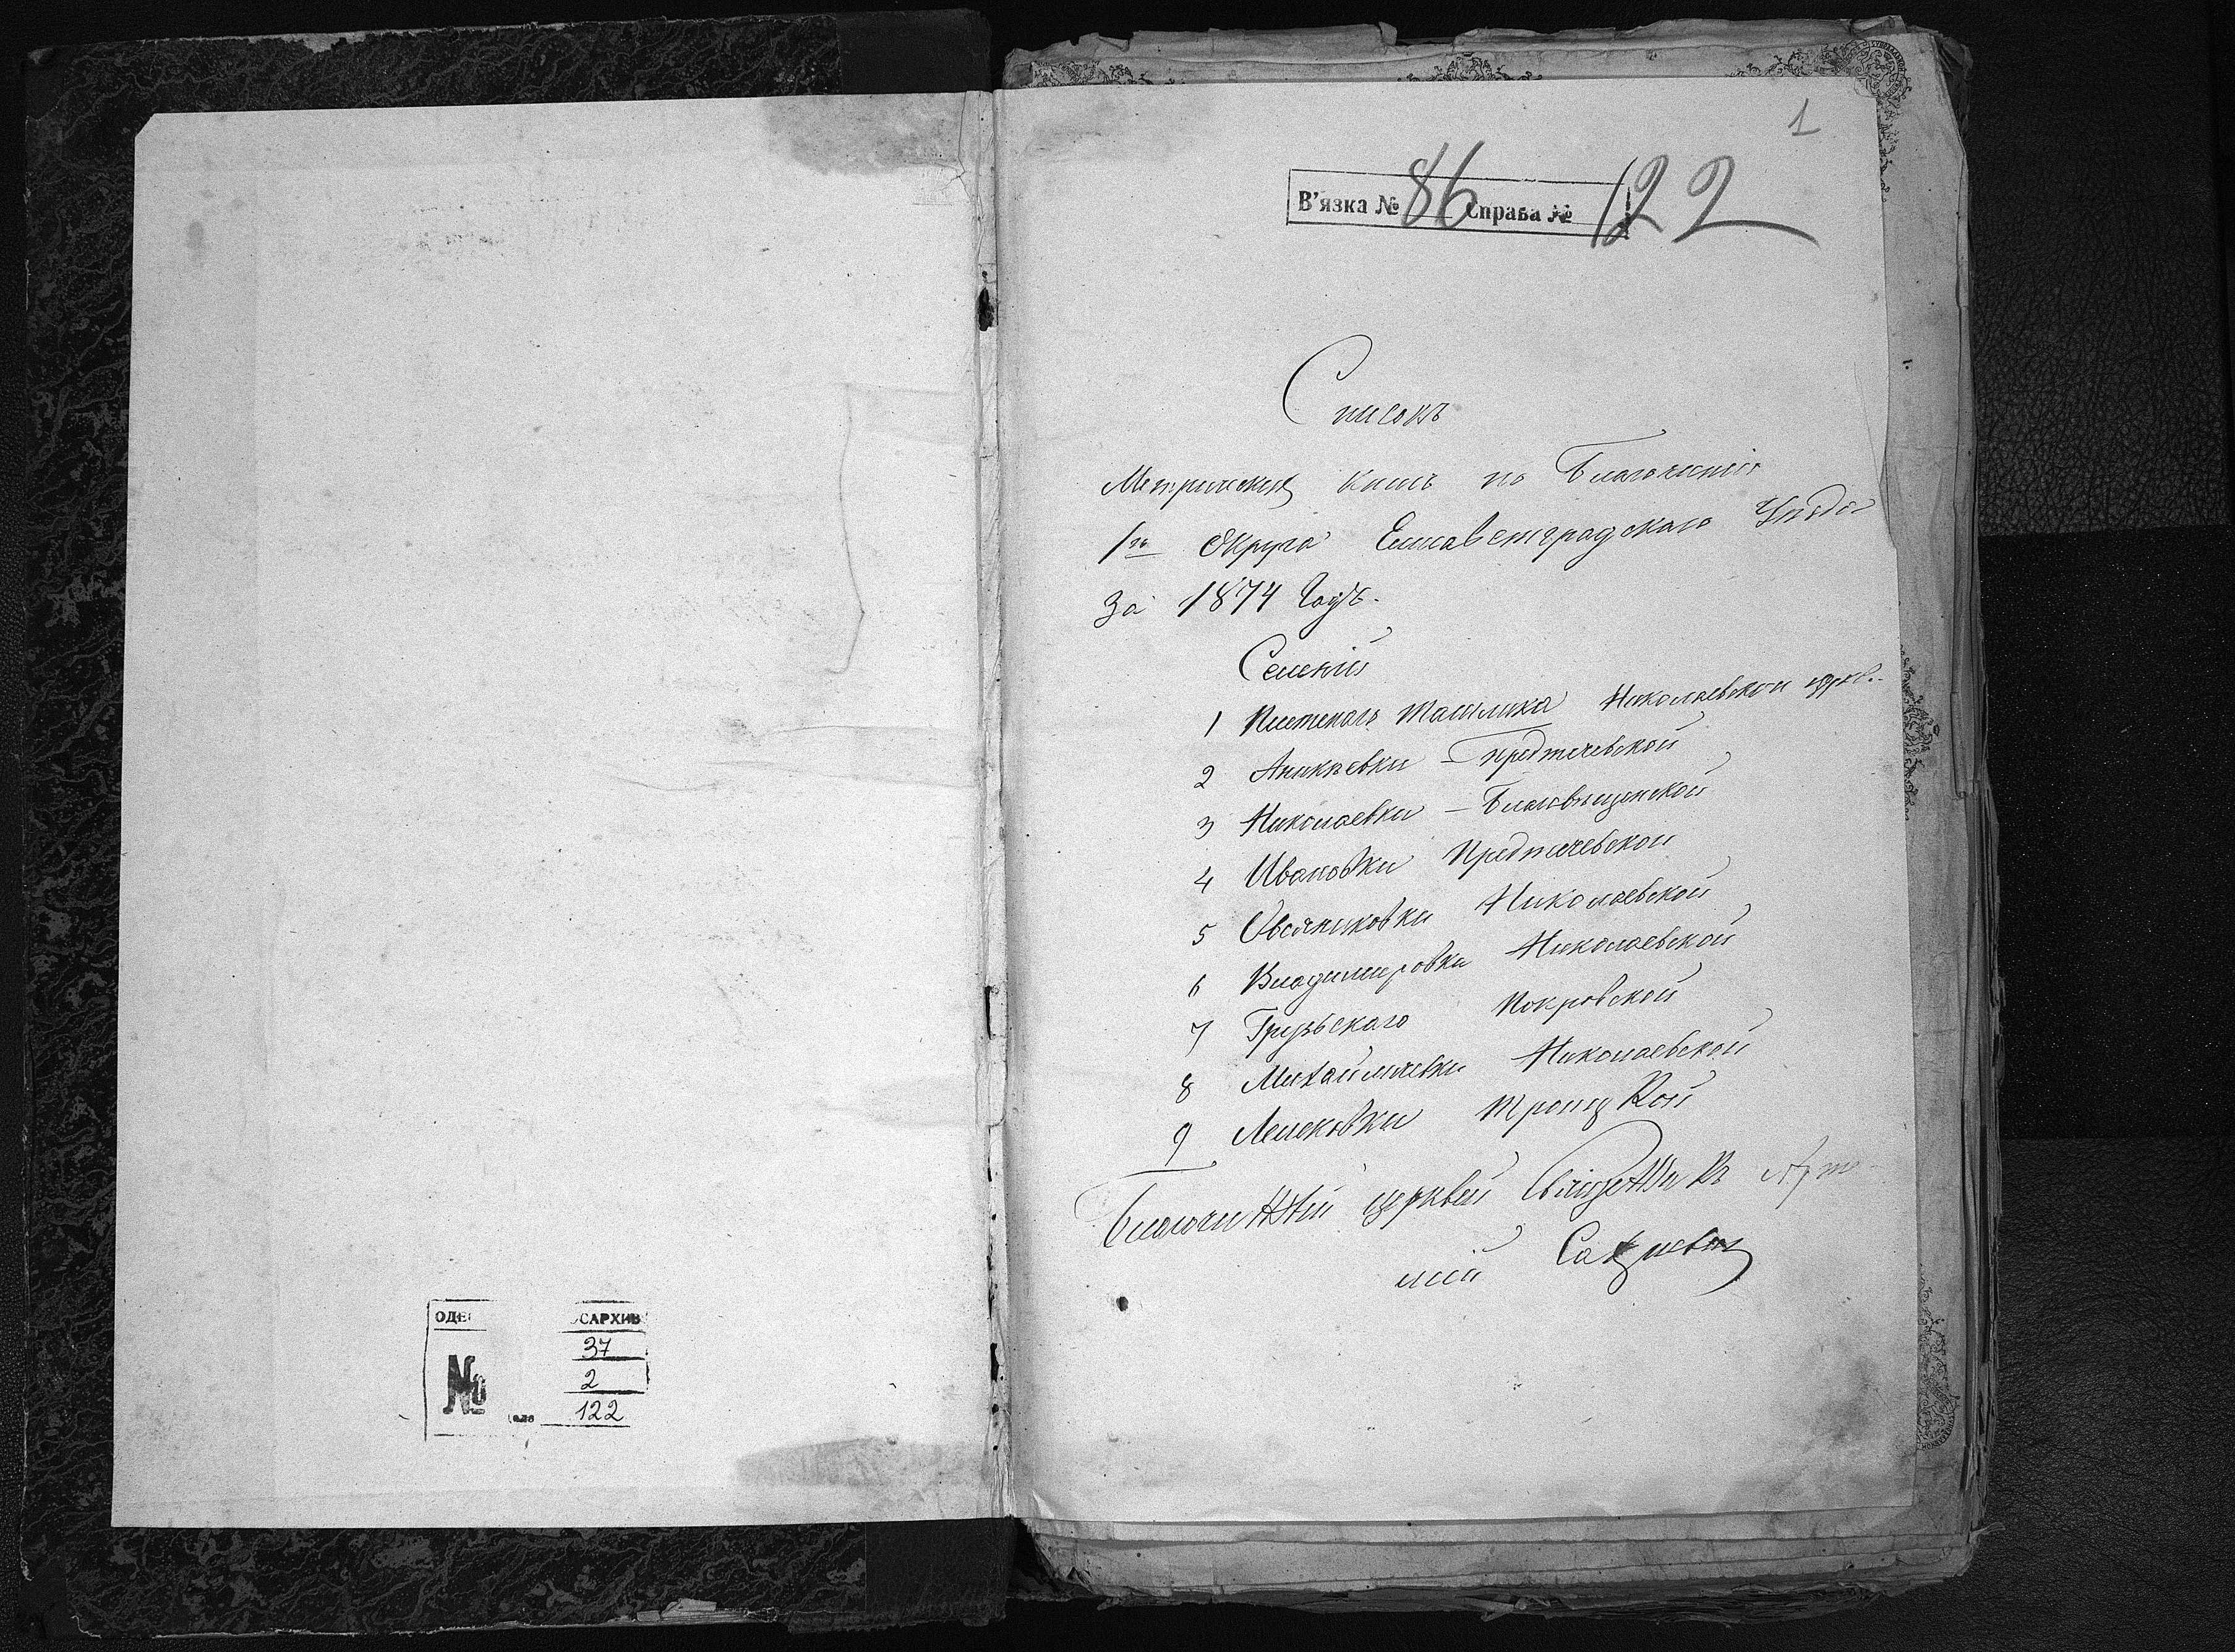 ОДЕ САРХИВ
37
№ 2
122
1
В'язка № 86 Справа № 122
Списокъ
Метрическихъ книгъ по Благочинію
1го Округа Елисаветградскаго Уѣзда
За 1874 Годъ.
Селеній
1 Плетенаго Ташлика Николаевской церкв.
2 Аникѣевки – Предтечевской
3 Николаевки – Благовѣщенской
4 Ивановки Предтечевской
5 Овсяниковки Николаевской
6 Владимировки Николаевской
7 Грузьскаго Покровской
8 Михайловки Николаевской
9 Лелековки Троицкой
Благочинный церквей Священникъ